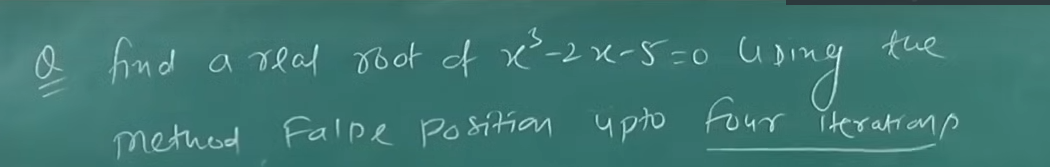 Q find a real root of x³-2x-5=0 using the
method False position upto four iterations